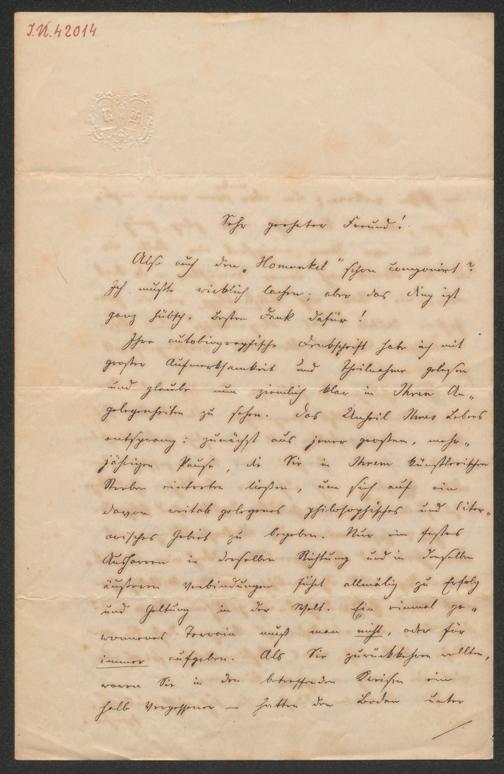 I.N. 42014
Sehr geehrter Freund!
Also auch den „Homunkel“ schon componirt?
Ich mußte wirklich lachen; aber das Ding ist
ganz hübsch. Besten Dank dafür!
Ihre autobiographische Denkschrift habe ich mit
großer Aufmerksamkeit und Theilnahme gelesen
und glaube nun ziemlich klar in Ihren An-
gelegenheiten zu sehen. Das Unheil Ihres Lebens
entsprang: zunächst aus jener großen, mehr-
jährigen Pause, die Sie in Ihrem künstlerischen
Streben eintreten ließen, um sich auf ein
davon weitab gelegenes philosophisches und liter-
arisches Gebiet zu begeben. Nur ein festes
Ausharren in derselben Richtung und in denselben
äußeren Verbindungen führt allmälig zu Erfolg
und Geltung in der Welt. Ein einmal ge-
wonnenes Terrain muß man nicht, oder für
immer aufgeben. Als Sie zurückkehren wollten,
waren Sie in den betreffenden Kreisen ein
halb Vergessener — hatten den Boden unter